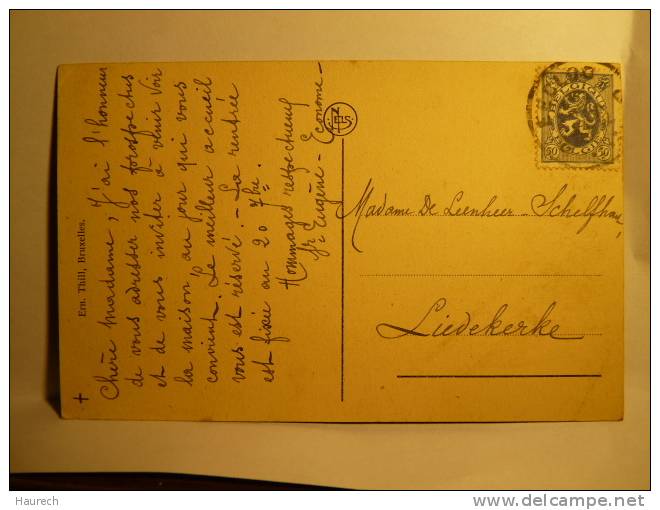 +
Chère madame, J'ai l'honneur
de vous adresser nos prospectus
et de vous inviter à venir voir
la maison au jour qui vous
convient. Le meilleur accueil
vous est réservé. - La rentrée
est fixée au 20 7bre.
Hommages respectueux
fr Eugène - Econome -
Ern. Thill, Bruxelles.
BELGIQUE
50 50
Madame De Leenheer - Schelfhau
Liedekerke
Haurech
delcampe.net